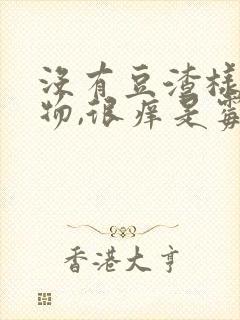 没有豆渣样
物,很痒是霉
香港大亨